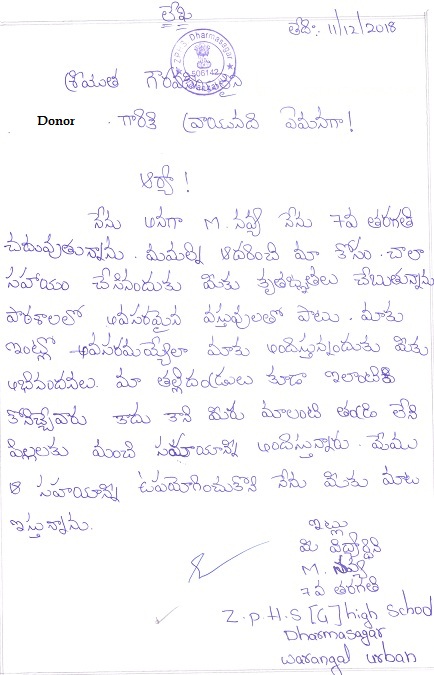 లేఖ
తేది:. 11/12/2018
Z.P.H.S. Dharmasagar
506142
శ్రీయుత గౌరవనీయులైన
Donor . గారికి వ్రాయునది ఏమనగా!
ఆర్యా!
నేను అనగా M. నవ్య నేను 7వ తరగతి
చదువుతున్నాను. మిమల్ని ఆదరించి మా కోసం. చాలా
సహాయం చేసినందుకు మీకు కృతజ్ఞతలు చేబుతున్నాను
పాఠశాలలో అవసరమైన వస్తువులతో పాటు. మాకు
ఇంట్లో అవసరమయ్యేలా మాకు అందిస్తున్నందుకు మీకు
అభినందనలు. మా తల్లిదండ్రులు కూడా ఇలాంటికి
కొనిచ్చేవారు కాదు కాని మీరు మాలంటి తండ్రి లేని
పిల్లలకు మంచి సహాయాన్ని అందిస్తున్నారు. మేము
ఆ సహాయాన్ని ఉపయోగించుకొని నేను మీకు మాట
ఇస్తున్నాను.
ఇట్లు
మీ విద్యార్థిని
M. నవ్య
7వ తరగతి
Z.P.H.S [G] high School
Dharmasagar
warangal urban